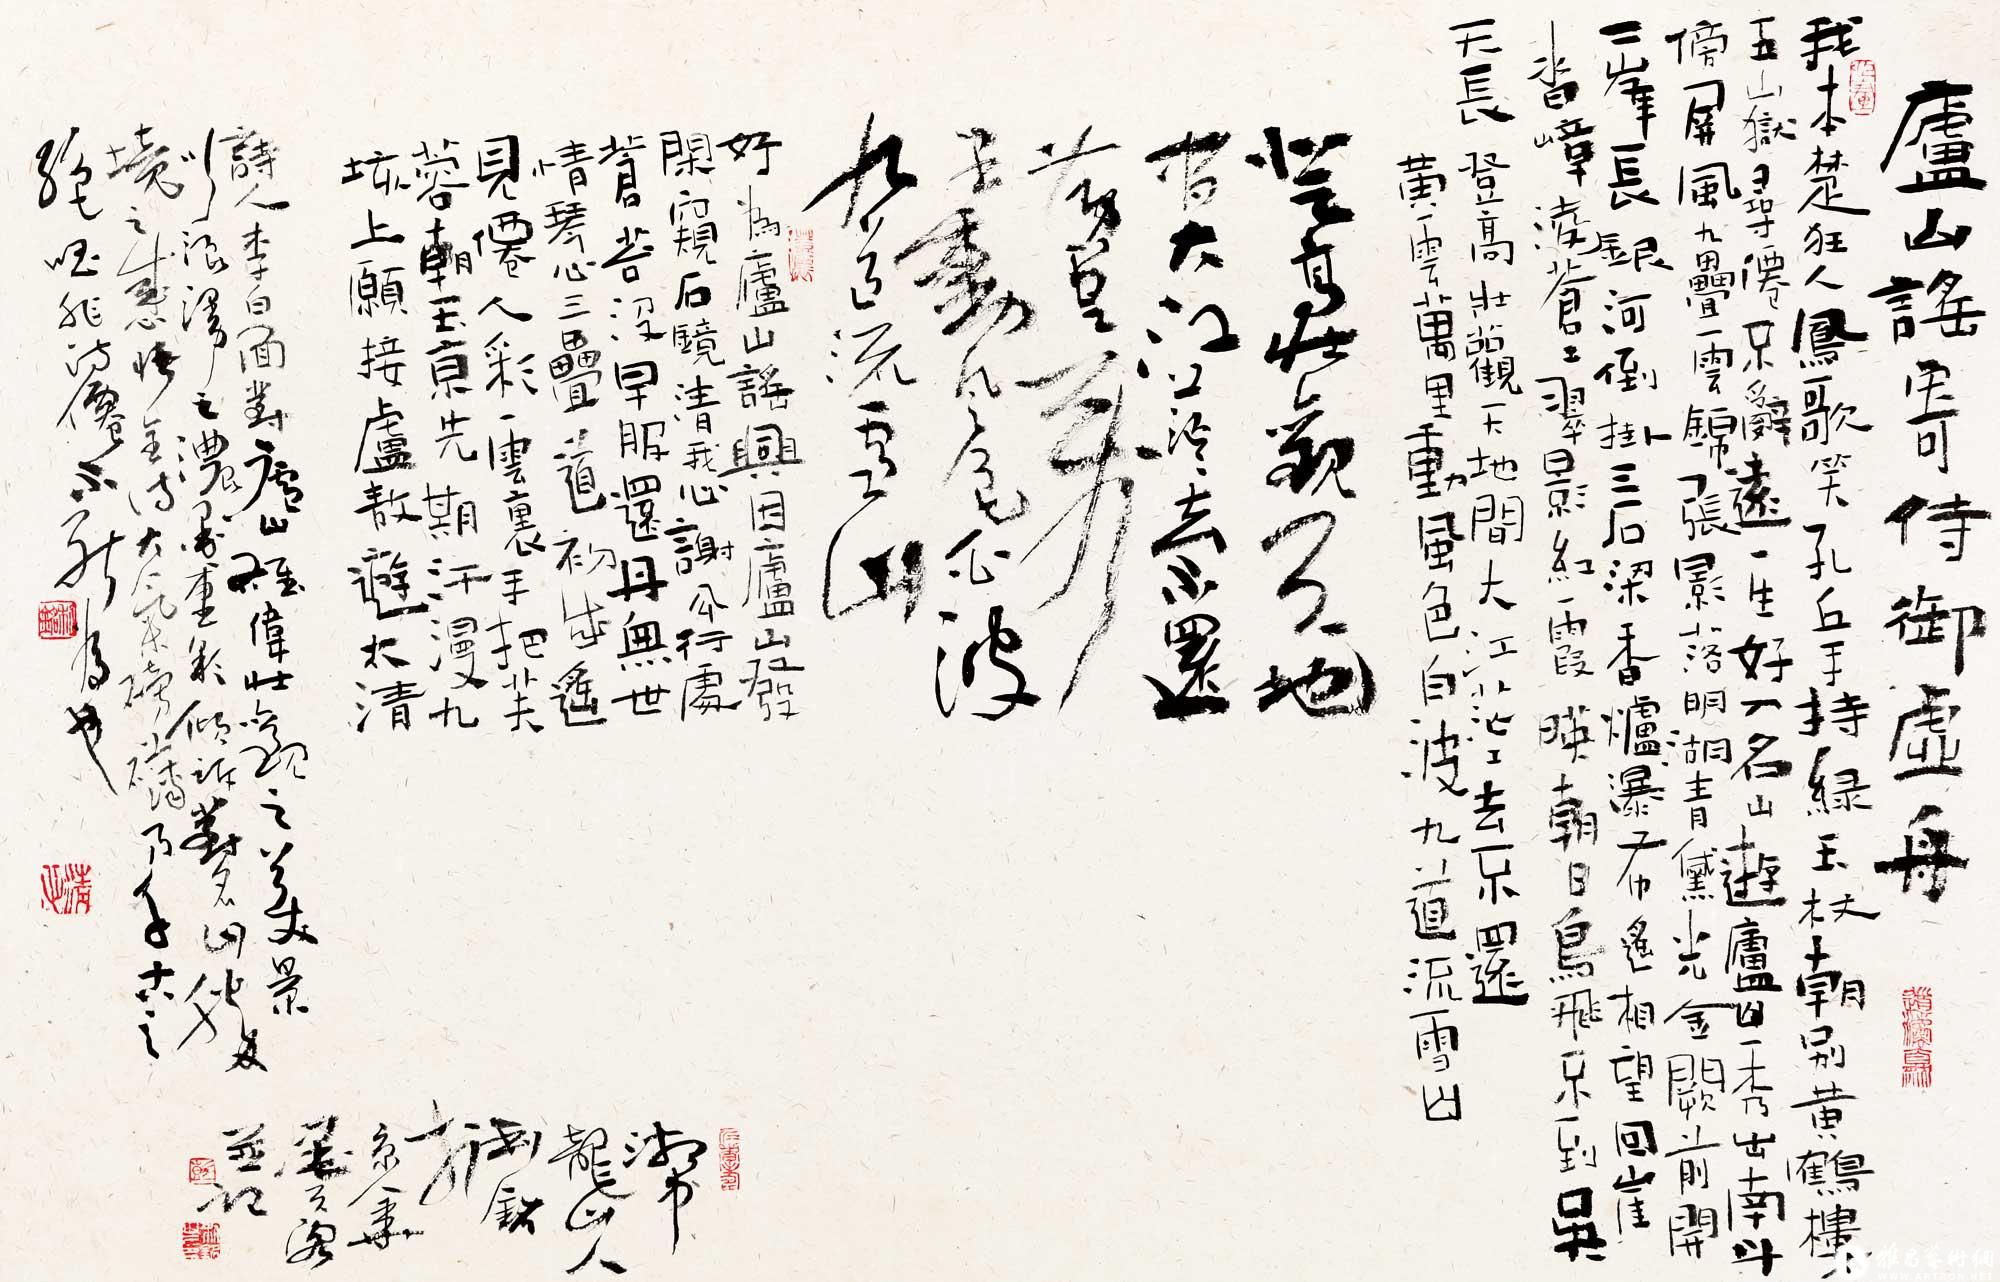 廬山謠寄侍御虛舟
我本楚狂人鳳歌笑孔丘手持綠玉杖朝別黃鶴樓
五山獄尋僊不辭遠一生好入名山遊廬山秀出南斗
傍屏風九疊雲錦張影落明湖青黛光金闕前開
二峯長銀河倒挂三石梁香爐瀑布遙相望回崖
沓嶂淩蒼蒼翠影紅霞暎朝日鳥飛不到吳
天長 登高壯觀天地間大江茫茫去不還
黃雲萬里動風色白波九道流雪山
登高壯觀天地
間大江茫茫去不還
黃雲萬
里動風色白波
九道流雪山
好為廬山謠興因廬山發
閑窺石鏡清我心謝公行處
蒼苔沒早服還丹無世
情琴心三疊道初成遙
見僊人彩雲裏手把芙
蓉朝玉京先期汗漫九
垓上願接盧敖遊太清
詩人李白面對廬山雄偉壯觀之美景
浪漫之濃墨重彩傾訴對名山
境之感悟全詩大氣磅礴乃千古之
絕唱非詩僊不能為也
龍山人
於
京華
並記
雅昌藝術網